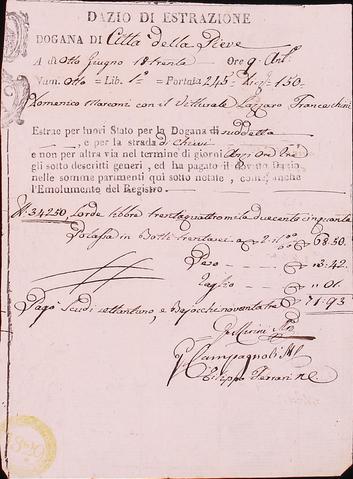 DAZIO DI ESTRAZIONE
DOGANA DI Città della Pieve
A dì otto Giugno 18trenta Ore 9 Ant.
Num. otto = Lib. 1° = Portata 245 150
Domenico Marconi con il Vetturale Lazzaro Franceschini
Estrae per fuori Stato per la Dogana di suddetta
, e per la strada di Chiusi
e non per altra via nel termine di giorni Ore tre
gli sotto descritti generi, ed ha pagato il dovuto Dazio
nelle somme parimenti quì sotto notate, come anche
l'Emolumento del Registro.
34250 Lorde libbre trentaquattromila duecento cinquanta
Potassa in Botti trentasei a 2 68.50
Peso 3:42
Taglio " 01.
Pagò Scudi settantuno, e Bajocchi novantatre 71.93
Campagnoli
Filippo Ferrari